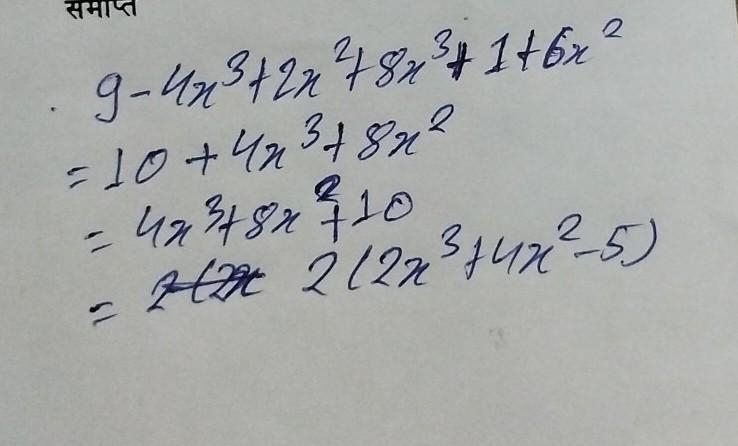 समाप्त
9-4x³+2x²+8x³+1+6x²
=10+4x³+8x²
=4x³+8x²+10
= 2(2x³+4x²-5)